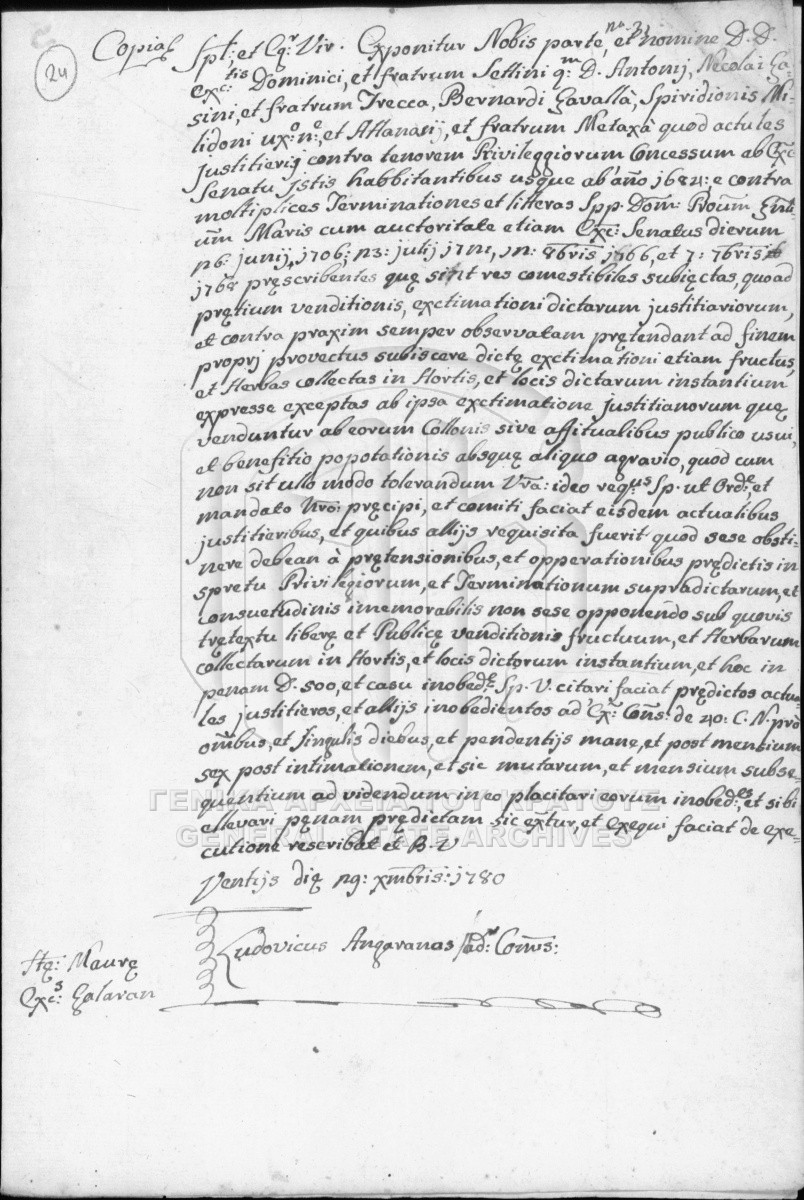 24
Copia
no: 31
Spt: et Eqr Vir. Exponitur Nobis parte, et nomine D. D.
Exc:tis Dominici, et fratrum Settini qm D. Antonij, Necolai Ga-
sini, et fratrum Trecca, Bernardi Gavallà, Spiridionis Mi-
lidoni uxo: ne, et Attanasij, et fratrum Metaxà quod actules
justitierij contra tenorem Privileggiorum Concessum ab Exc:
Senatu Jstis habbitantibus usque ab año 1684; e contra
moltiplices Terminationes et litteras Spp: Dom: Proum Gnli-
um Maris cum auctoritate etiam Exc: Senatus dierum
n6: junij, 1706; n3: julij 1711, 1n: 8bris 1766, et 7: 7bris
1768 pręscribentes quę sint res comestibiles subięctas, quoad
prętium venditionis, exctimationi dictarum justitiariorum,
et contra praxim semper observatam prętendant ad finem
proprj provectus subiscere dictę exctimationi etiam fructus,
et Herbas collectas in Hortis, et locis dictarum instantium
expresse exceptas ab ipsa exctimatione justitianorum quę
venduntur ab eorum Collonis sive affitualibus publico usui,
et benefitio popotationis absquę aliquo agravio, quod cum
non sit ullo modo tolerandum Vra: ideo requs Sp. ut Orde, et
mandato Nro: pręcipi, et comiti faciat eisdem actualibus
justitieribus, et quibus allijs requisita fuerit quod sese obsti-
nere debean à prętensionibus, et opperationibus prędictis in
spretu Privilegiorum, et Terminationum supradictarum, et
consuetudinis immemorabilis non sese opponendo sub quovis
trętextu liberę et Publicę venditionis fructuum, et Herbarum
collectarum in Hortis, et locis dictorum instantium, et hoc in
penam D. 500, et casu inobedte Sp. V. citari faciat prędictos actua-
les justitieros, et allijs inobedientos ad Ex: Coms: de 40: C. N. pro
omibus, et singulis diebus, et pendentijs mane, et post mensium
sex post intimationem, et sic mutarum, et mensium subse-
quentium ad videndum in eo placitari eorum inobedes, et sibi
ellevari pęnam prędictam sic extur, et exequi faciat de exe-
cutione rescribat et B. V
Ventijs dię n9: xmbris: 1780
Ludovicus Angaranas Adr: Coms:
Stę: Maurę
Excs: Galavan
ΓΕΝΙΚΑ ΑΡΧΕΙΑ ΤΟΥ ΚΡΑΤΟΥΣ
GENERAL STATE ARCHIVES